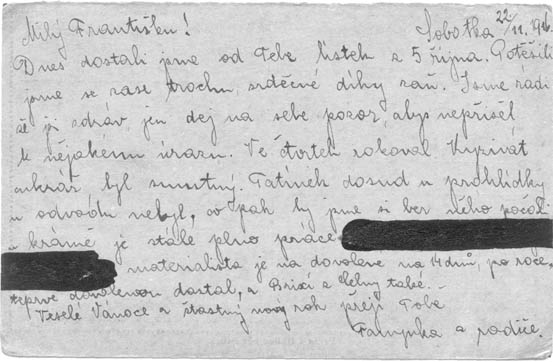 Milý Františku! Sobotka 22/11. 1916.
Dnes dostali jsme od Tebe lístek z 5 října. Potěšili
jsme se zase trochu, srdečné díky zaň. Jsme rádi
že jsi zdráv, jen dej na sebe pozor, abys nepřišel
k nějakému úrazu. Ve čtvrtek rukoval
cukrář byl smutný. Tatínek dosud u prohlídky
u odvodu nebyl, co pak by jsme si bez něho počali
v krámě je stále plno práce.
materialista je na dovolené na 14 dnů, po roce
teprve dovolenou dostal, a také. –
Veselé Vánoce a šťastný nový rok přejí Tobě
a rodiče.